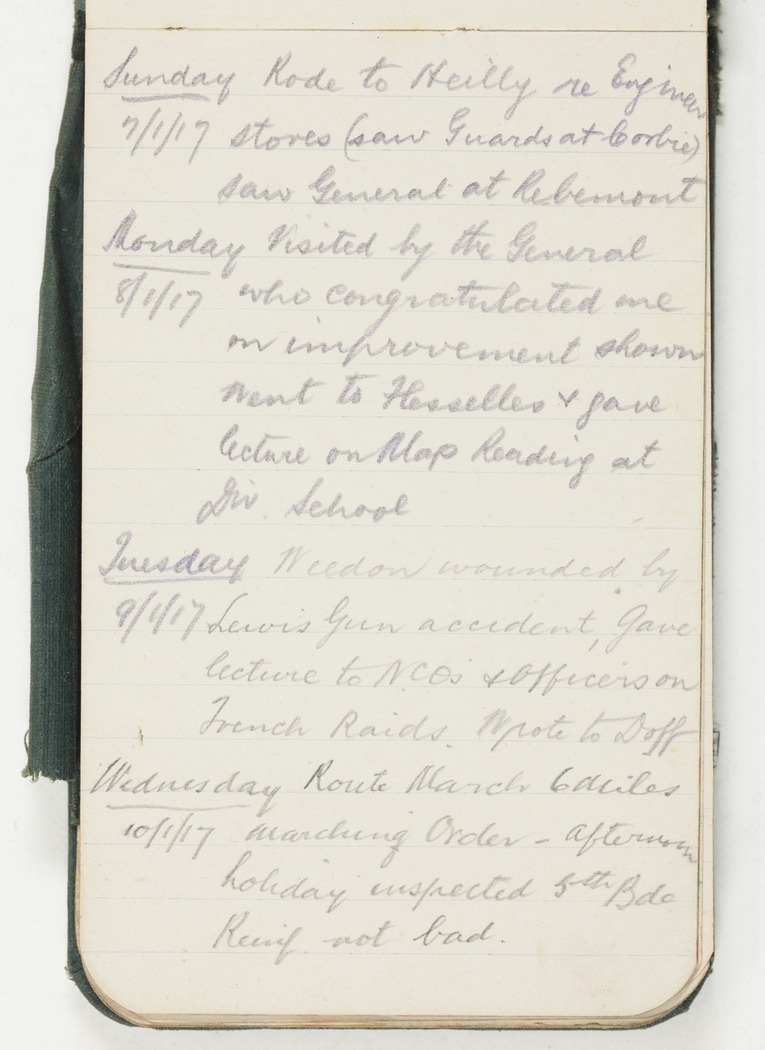 Sunday Rode to Heilly re Engineer
7/1/17 stores (saw Guards at Corbie)
saw General at Rebemont
Monday Visited by the General
8/1/17 who congratulated me
on improvement shown
Went to Flesselles & gave
lecture on Map Reading at
Div. School
Tuesday Weedon wounded by
9/1/17 Lewis Gun accident, Gave
lecture to N.C.Os & Officers on
French Raids. Wrote to Doff
Wednesday Route March 6 miles
10/1/17 marching Order - afternoon
holiday inspected 5th Bde
Reinf not bad.